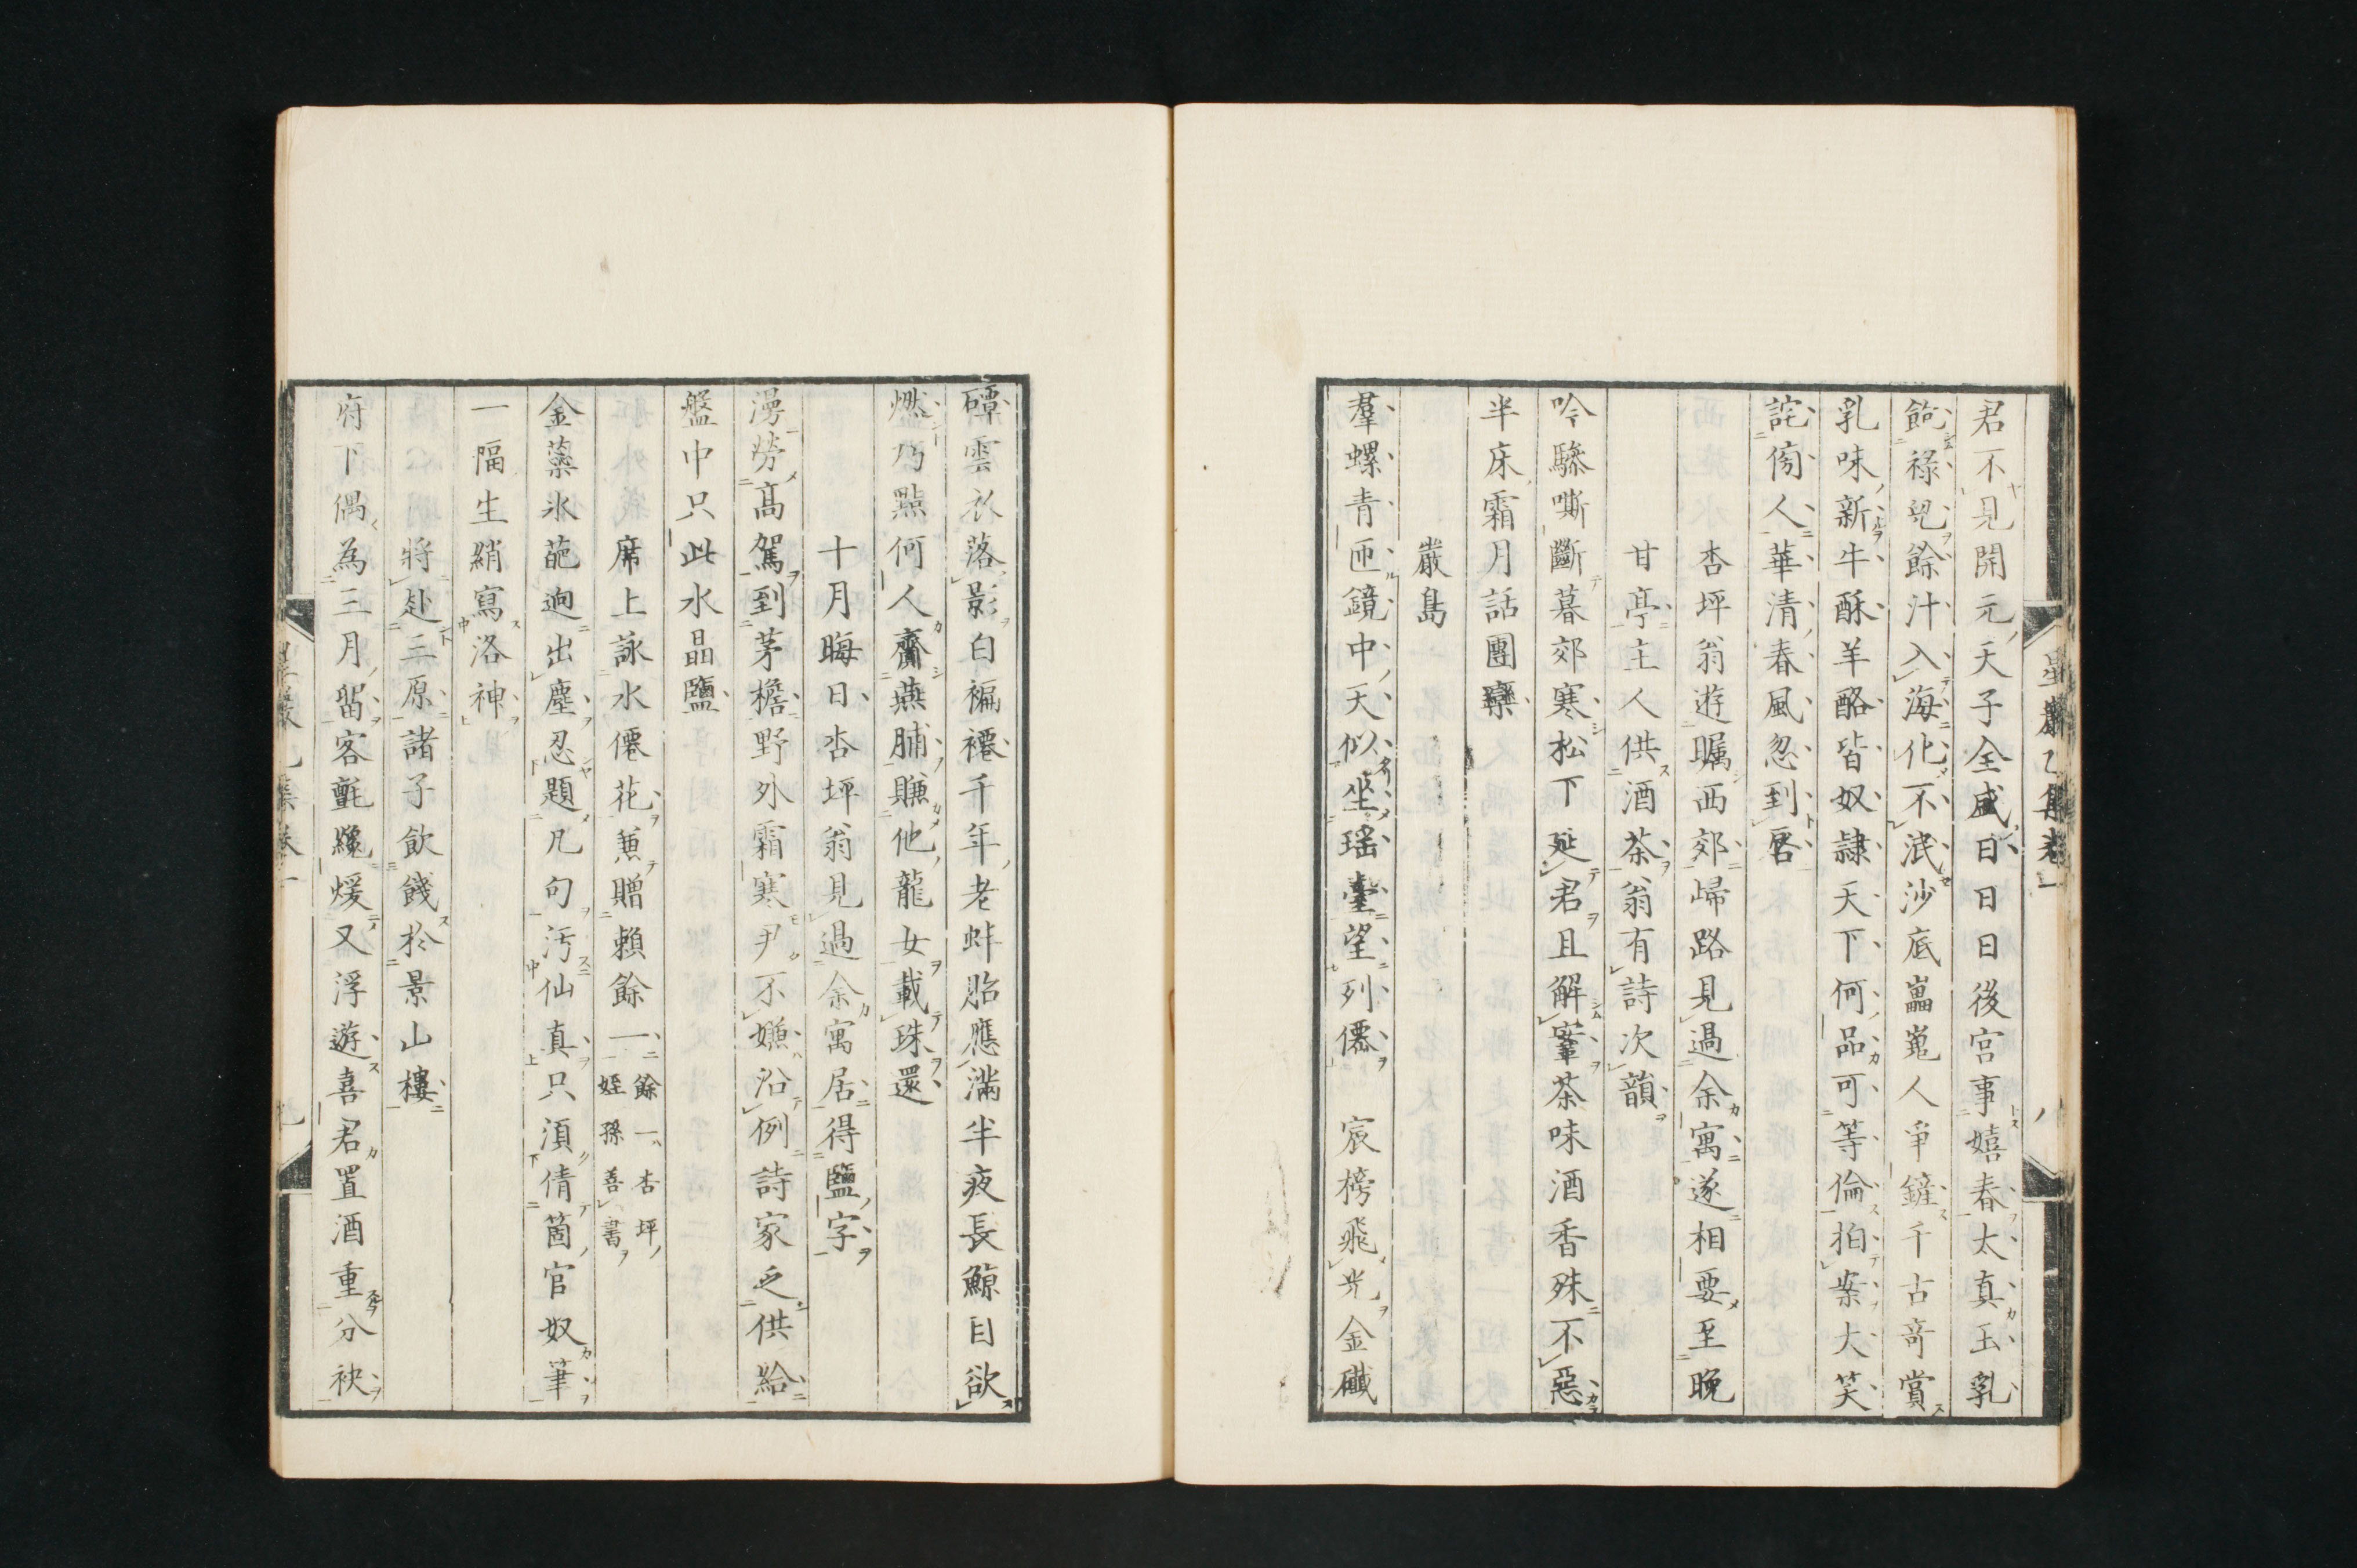 星巖乙集卷一
八
君不見開元天子全盛日日日後宮事嬉春太真玉乳
飽祿兒餘汁入海化不泯沙底崑崙人爭鏟千古奇賞
乳味新牛酥羊酪皆奴隸天下何品可等倫拍案大笑
詫傍人華清春風忽到唇
杏坪翁遊矚西郊歸路見過余寓遂相要至晚
甘亭主人供酒茶翁有詩次韻
吟驂嘶斷暮郊寒松下延君且解鞌茶味酒香殊不惡
半床霜月話團欒
嚴島
羣螺青匝鏡中天似坐瑤臺望列僊 宸榜飛光金礟
磹雲衣落影白褊褼千年老蚌貽應滿半夜長鯨目欲
燃巧點何人齎燕脯賺他龍女載珠還
十月晦日杏坪翁見過余寓居得鹽字
漫勞高駕到茅檐野外霜寒尹不嫌沿例詩家乏供給
盤中只此水晶鹽
席上詠水僊花兼贈賴餘一餘一杏坪姪孫善書
金蘂氷葩迥出塵忍題凡句汚仙真只須倩箇官奴筆
一幅生綃寫洛神
將赴三原諸子飲餞於景山樓
府下偶為三月留客氈纔煖又浮遊喜君置酒重分袂